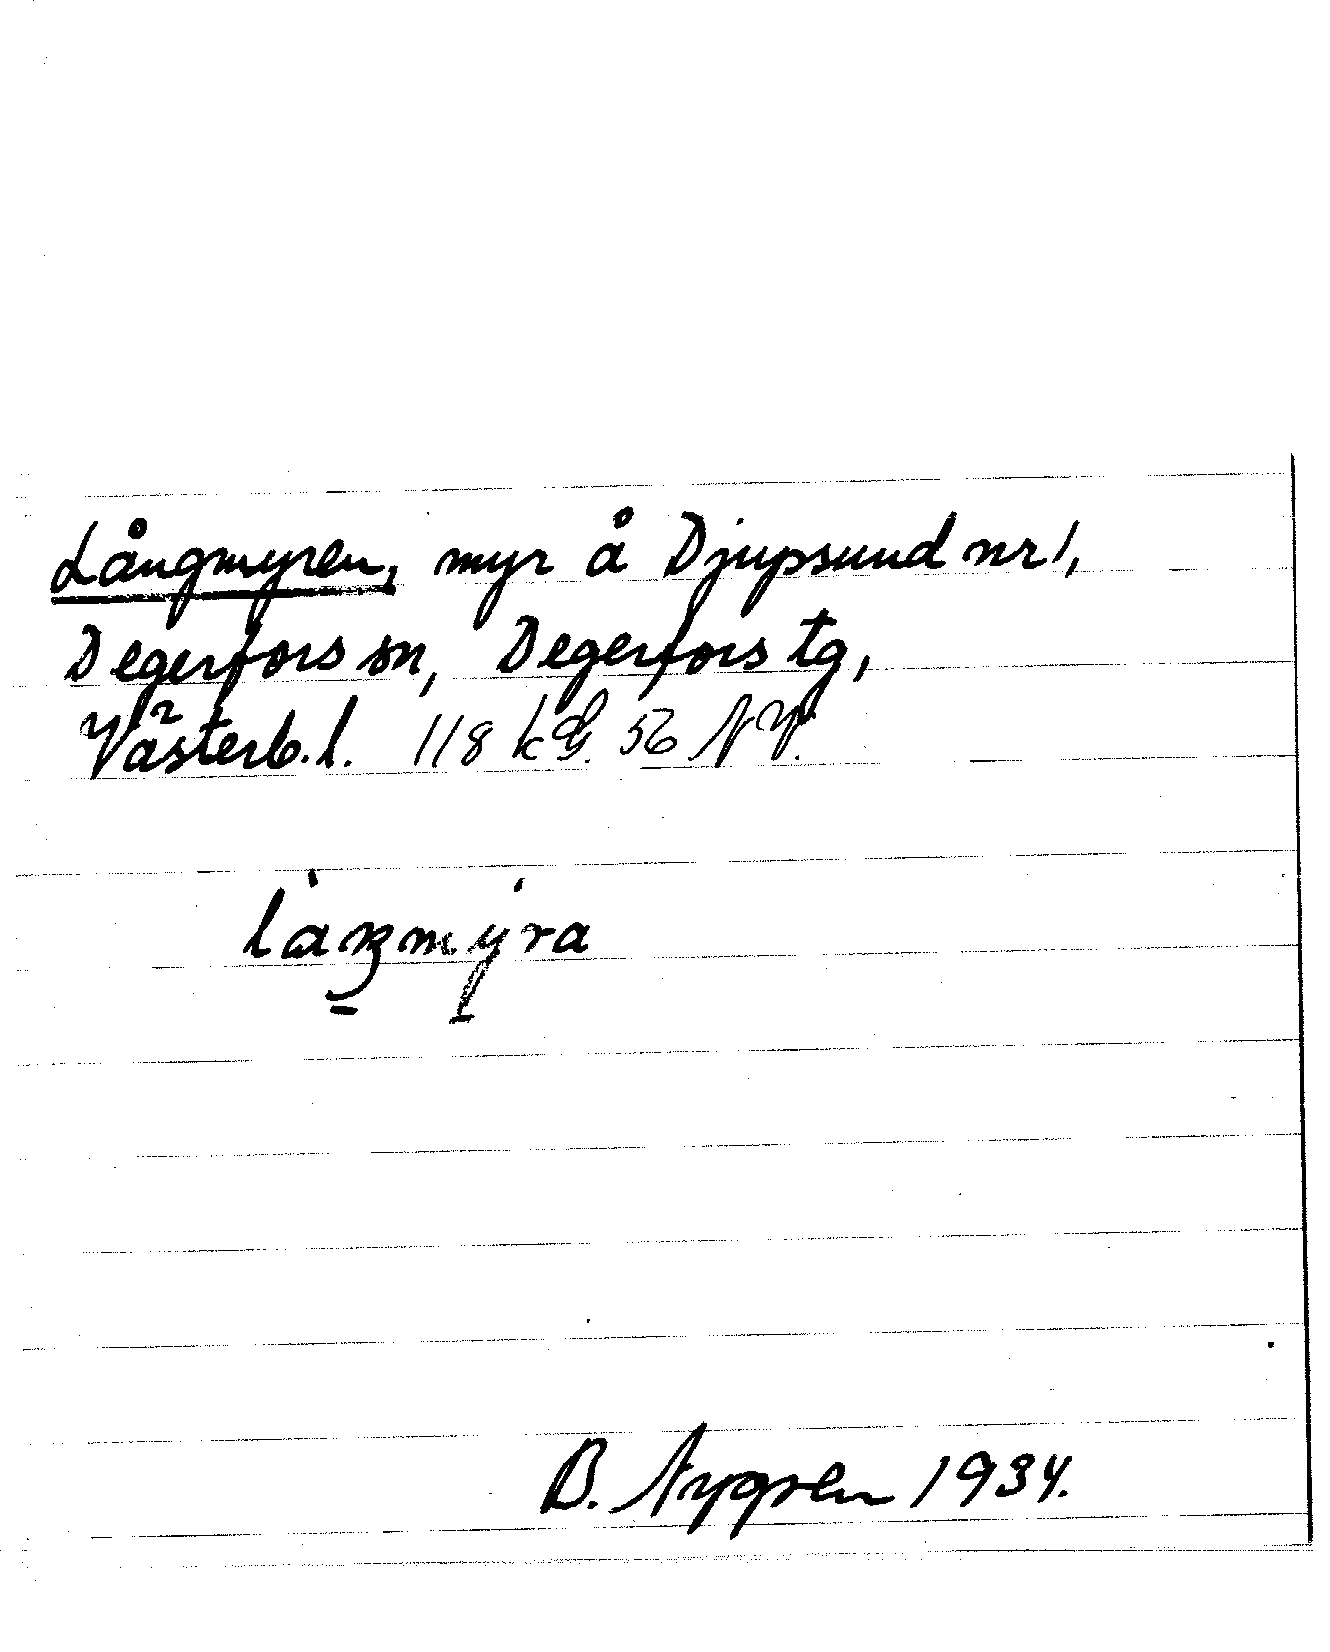 Långmyren, myr å Djupsund nr 1,
Degerfors sn, Degerfors tg,
Västerb. l. 118 kG. 56 NV.
B. Nygren 1934.